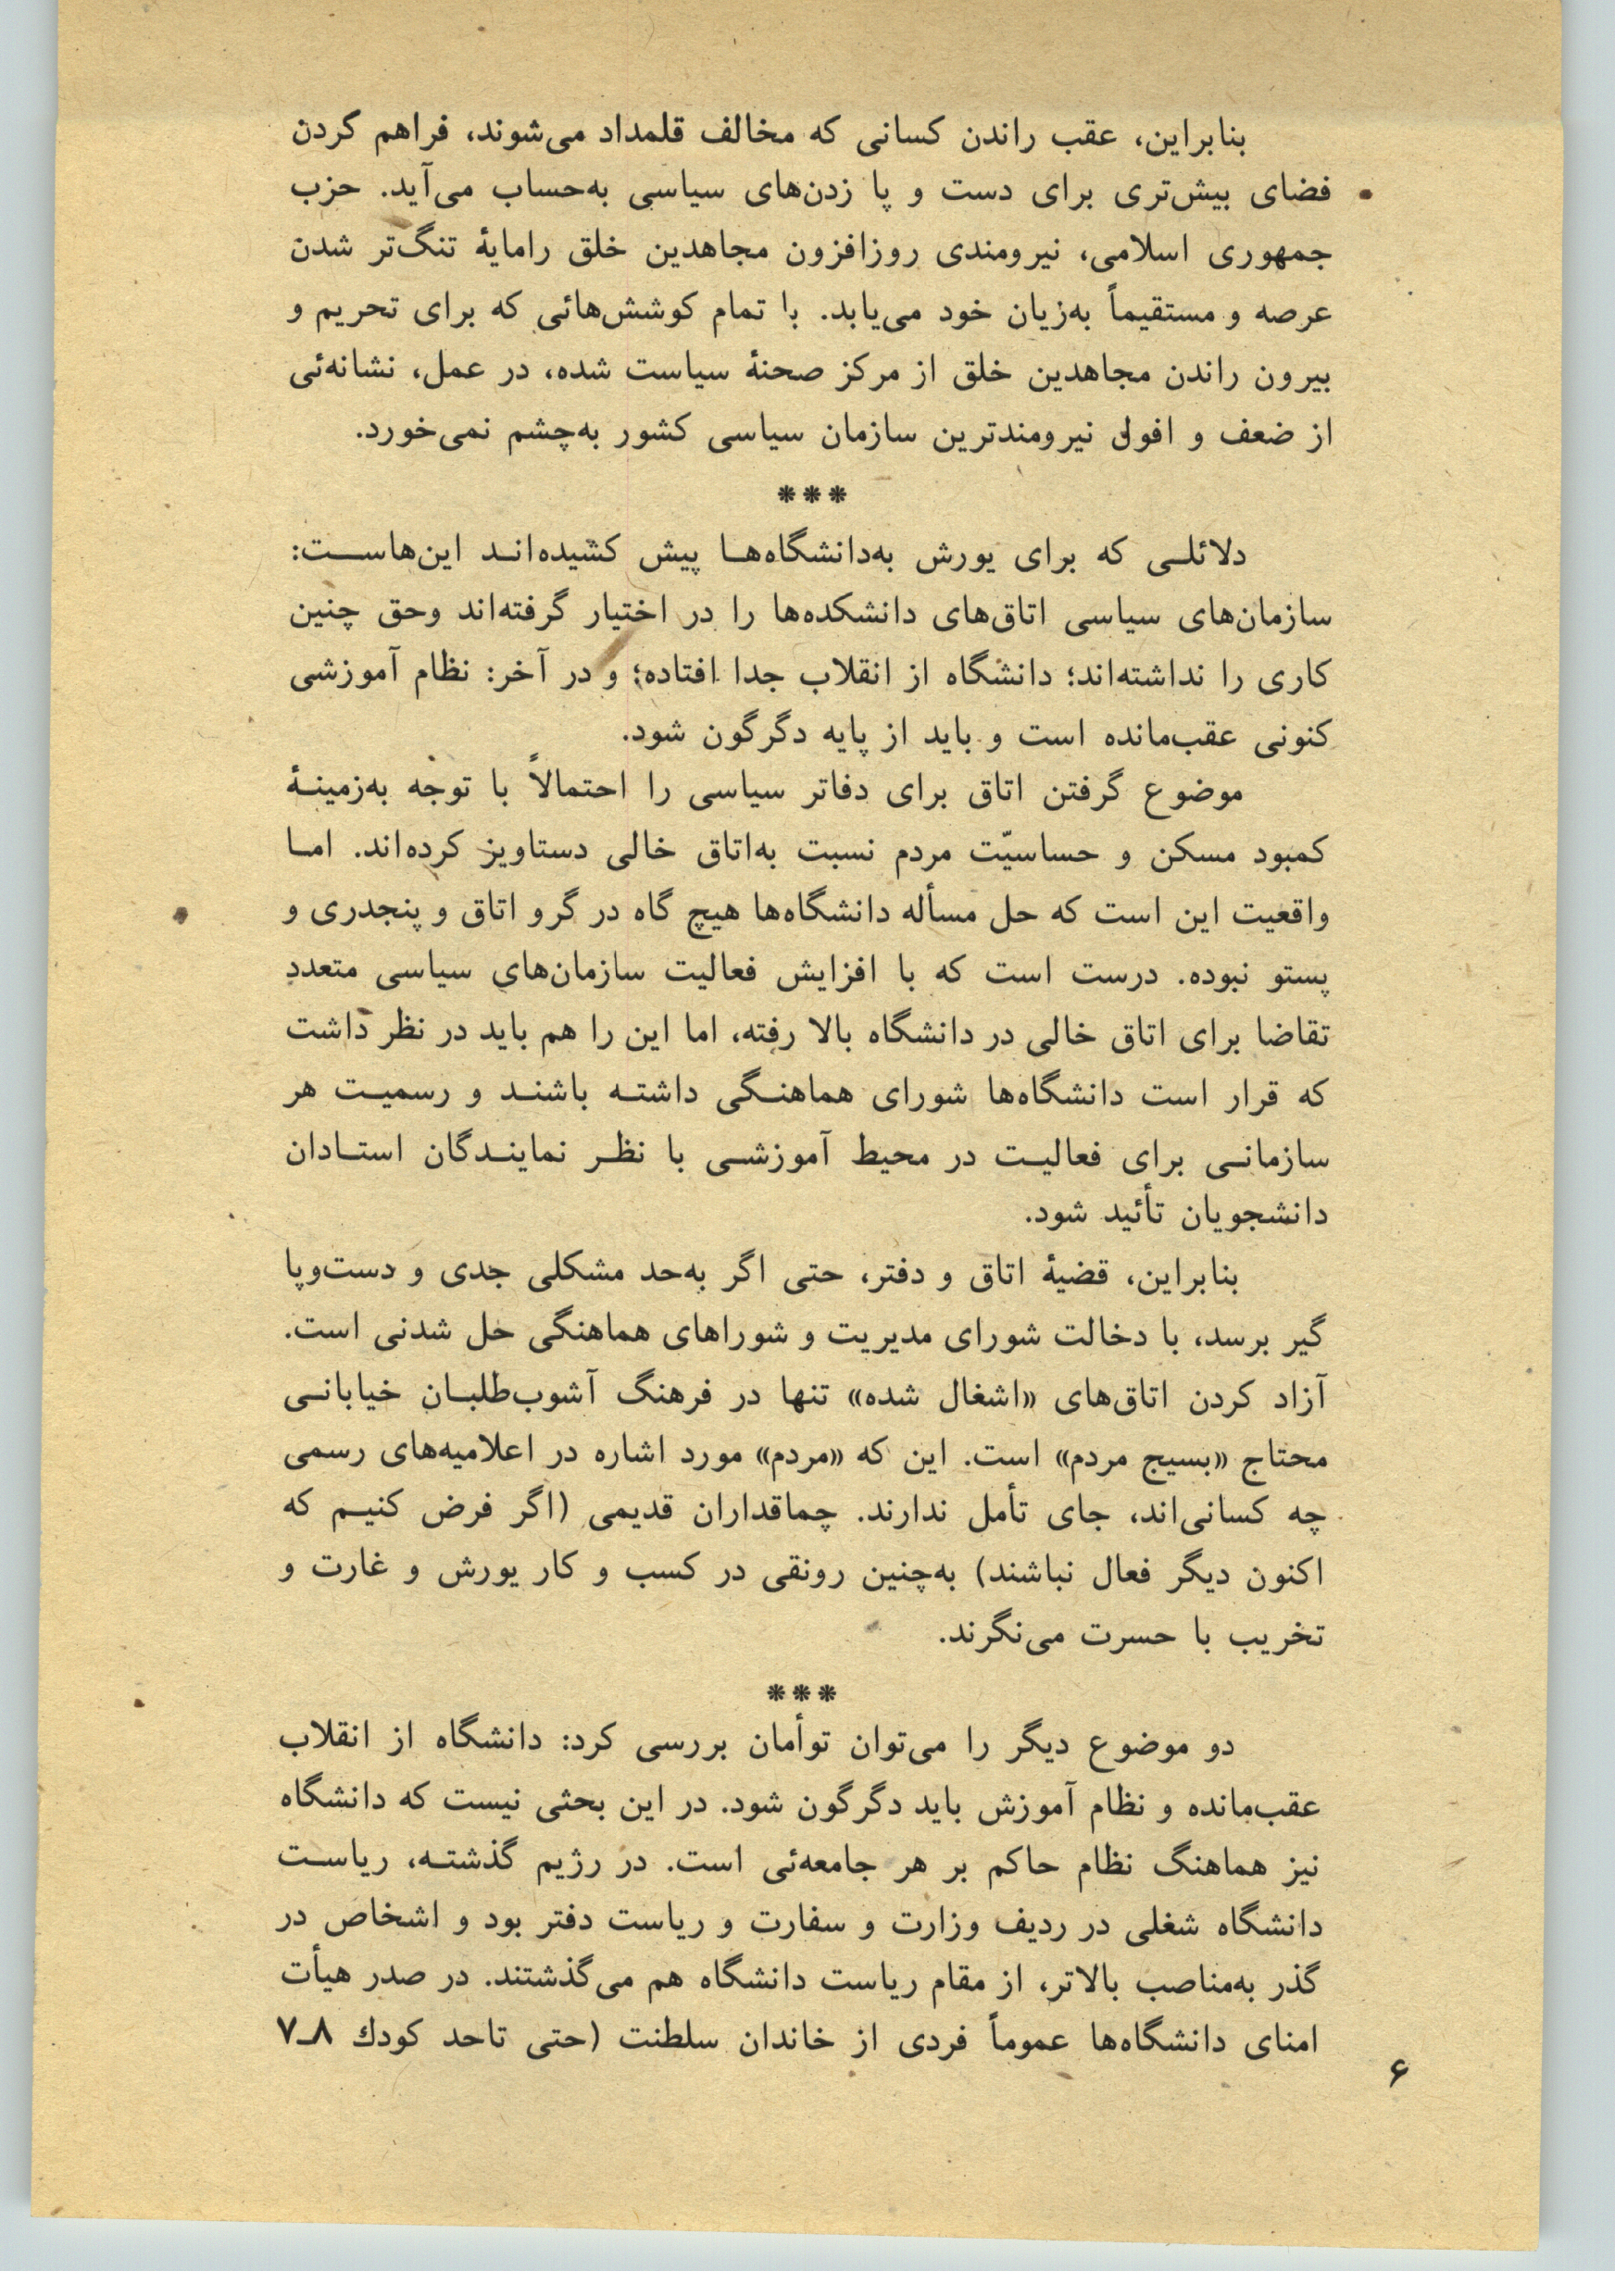 بنابراین، عقب راندن کسانی که مخالف قلمداد می‌شوند، فراهم کردن
فضای بیش‌تری برای دست و پا زدن‌های سیاسی به‌حساب می‌آید. حزب
جمهوری اسلامی، نیرومندی روزافزون مجاهدین خلق رامایهٔ تنگ‌تر شدن
عرصه و مستقیماً به‌زیان خود می‌یابد. با تمام کوشش‌هائی که برای تحریم و
بیرون راندن مجاهدین خلق از مرکز صحنهٔ سیاست شده، در عمل، نشانه‌ئی
از ضعف و افول نیرومندترین سازمان سیاسی کشور به‌چشم نمی‌خورد.
***
دلائلی که برای یورش به‌دانشگاه‌ها پیش کشیده‌اند این‌هاست:
سازمان‌های سیاسی اتاق‌های دانشکده‌ها را در اختیار گرفته‌اند وحق چنین
کاری را نداشته‌اند؛ دانشگاه از انقلاب جدا افتاده؛ و در آخر: نظام آموزشی
کنونی عقب‌مانده است و باید از پایه دگرگون شود.
موضوع گرفتن اتاق برای دفاتر سیاسی را احتمالاً با توجه به‌زمینهٔ
کمبود مسکن و حساسیّت مردم نسبت به‌اتاق خالی دستاویز کرده‌اند. اما
واقعیت این است که حل مسأله دانشگاه‌ها هیچ گاه در گرو اتاق و پنجدری و
پستو نبوده. درست است که با افزایش فعالیت سازمان‌های سیاسی متعدد
تقاضا برای اتاق خالی در دانشگاه بالا رفته، اما این را هم باید در نظر داشت
که قرار است دانشگاه‌ها شورای هماهنگی داشته باشند و رسمیت هر
سازمانی برای فعالیت در محیط آموزشی با نظر نمایندگان استادان
دانشجویان تأئید شود.
بنابراین، قضیهٔ اتاق و دفتر، حتی اگر به‌حد مشکلی جدی و دست‌وپا
گیر برسد، با دخالت شورای مدیریت و شوراهای هماهنگی حل شدنی است.
آزاد کردن اتاق‌های «اشغال شده» تنها در فرهنگ آشوب‌طلبان خیابانی
محتاج «بسیج مردم» است. این که «مردم» مورد اشاره در اعلامیه‌های رسمی
چه کسانی‌اند، جای تأمل ندارند. چماقداران قدیمی (اگر فرض کنیم که
اکنون دیگر فعال نباشند) به‌چنین رونقی در کسب و کار یورش و غارت و
تخریب با حسرت می‌نگرند.
***
دو موضوع دیگر را می‌توان توأمان بررسی کرد: دانشگاه از انقلاب
عقب‌مانده و نظام آموزش باید دگرگون شود. در این بحثی نیست که دانشگاه
نیز هماهنگ نظام حاکم بر هر جامعه‌ئی است. در رژیم گذشته، ریاست
دانشگاه شغلی در ردیف وزارت و سفارت و ریاست دفتر بود و اشخاص در
گذر به‌مناصب بالاتر، از مقام ریاست دانشگاه هم می‌گذشتند. در صدر هیأت
امنای دانشگاه‌ها عموماً فردی از خاندان سلطنت (حتی تاحد کودك ۸ـ۷
۶